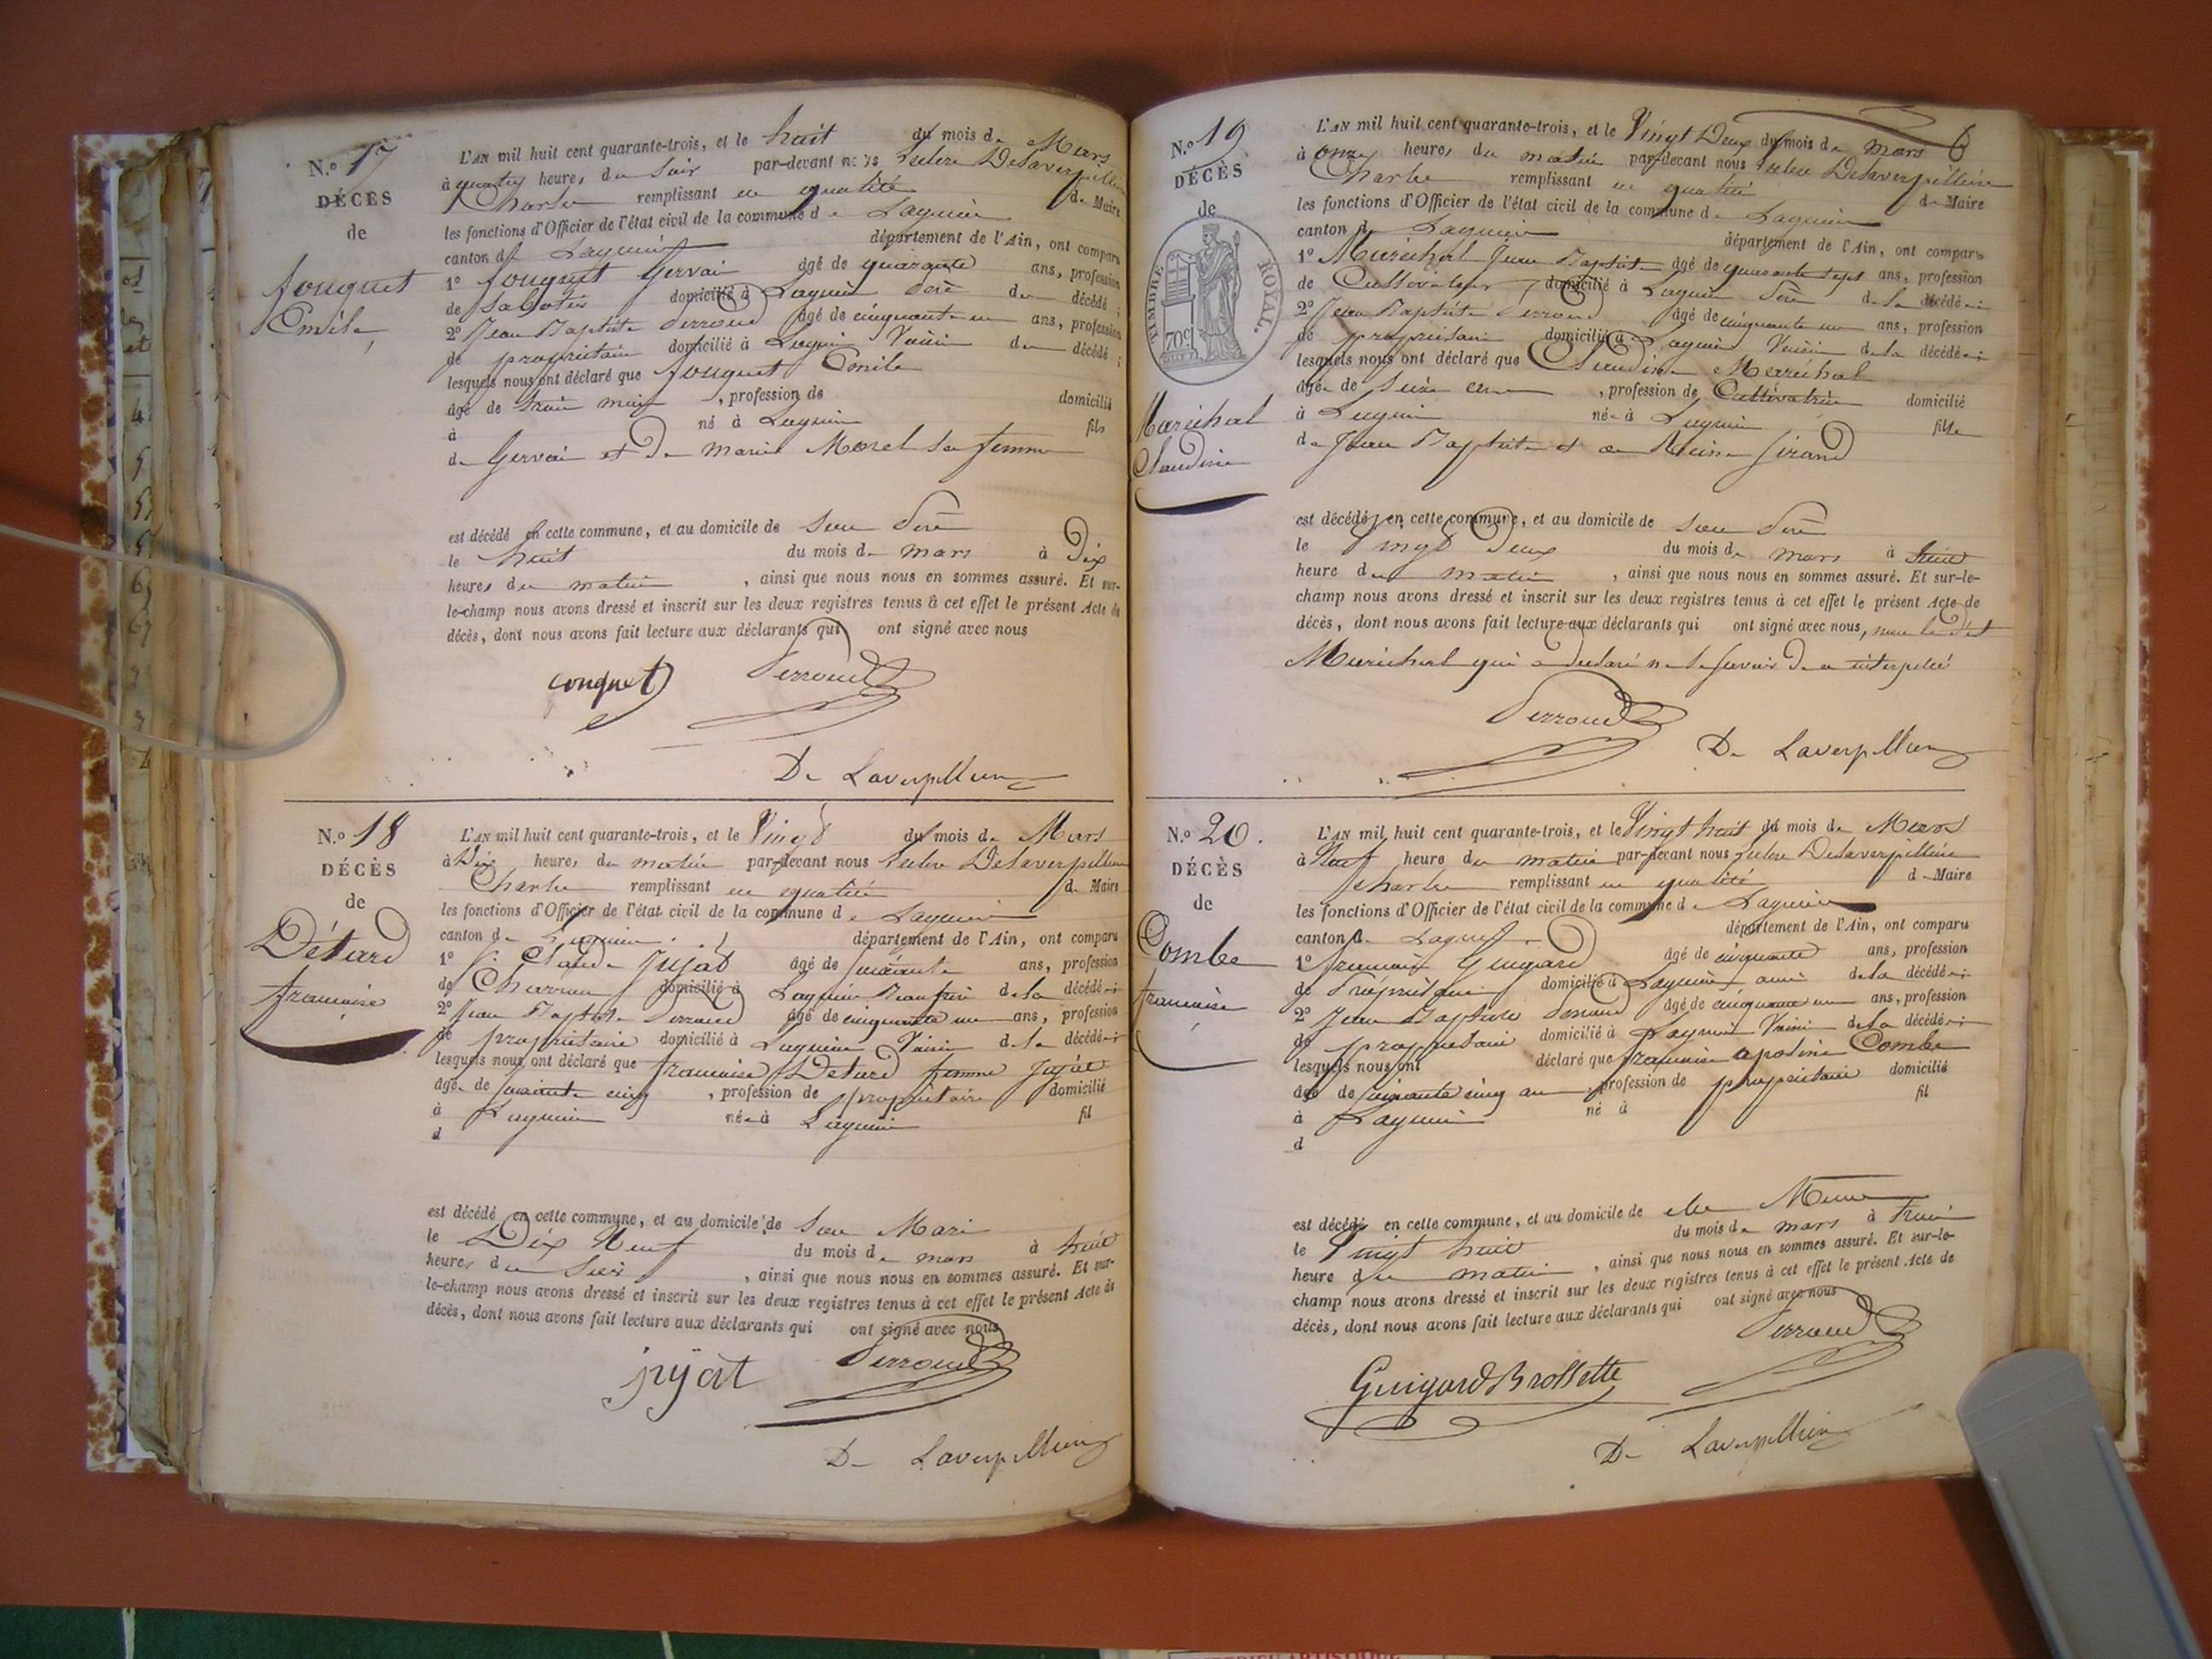 N.º 17
DÉCÈS
de
fouquet
Emile
L'AN mil huit cent quarante-trois, et le huit du mois de Mars
à quatre heures du Soir par-devant nous Leclere Delaverpilliere
Charles remplissant en qualité de Maire
les fonctions d'Officier de l'état civil de la commune de Lagnieu
canton de Lagnieu département de l'Ain, ont comparu
1º fouquet Gervais âgé de quarante ans, profession
de Sabotier domicilié à Lagnieu Père du décédé ;
2º Jean Baptiste Perroud âgé de cinquante un ans, profession
de propriétaire domicilié à Lagnieu Voisin du décédé ;
lesquels nous ont déclaré que fouquet Emile
âgé de trois mois , profession de domicilié
à né à Lagnieu fils
de Gervais et de marie Morel sa femme
est décédé en cette commune, et au domicile de son Père
le huit du mois de mars à Dix
heures du matin , ainsi que nous nous en sommes assuré. Et sur-
le-champ nous avons dressé et inscrit sur les deux registres tenus à cet effet le présent Acte de
décès, dont nous avons fait lecture aux déclarants qui ont signé avec nous
fouquet Perroud
De Laverpilliere
N.º 18
DÉCÈS
de
Détard
francoise
L'AN mil huit cent quarante-trois, et le Vingt du mois de Mars
à Dix heures du matin par-devant nous Leclere Delaverpilliere
Charles remplissant en qualité de Maire
les fonctions d'Officier de l'état civil de la commune de Lagnieu
canton de Lagnieu département de l'Ain, ont comparu
1º Claude Jujat âgé de ans, profession
de Charron domicilié à Lagnieu Beaufrère de la décédée ;
2º Jean Baptiste Perroud âgé de cinquante un ans, profession
de propriétaire domicilié à Lagnieu Voisin de la décédée ;
lesquels nous ont déclaré que francoise Détard femme Jujat
âgée de cinq , profession de propriétaire domicilié
à Lagnieu née à Lagnieu fil
d
est décédé en cette commune, et au domicile de son Mari
le Dix Neuf du mois de mars à huit
heures du Soir , ainsi que nous nous en sommes assuré. Et sur-
le-champ nous avons dressé et inscrit sur les deux registres tenus à cet effet le présent Acte de
décès, dont nous avons fait lecture aux déclarants qui ont signé avec nous
jyjat Perroud
De Laverpilliere
6
N.º 19
DÉCÈS
de
TIMBRE ROYAL.
70c
Maréchal
Claudine
L'AN mil huit cent quarante-trois, et le Vingt Deux du mois de mars
à onze heures du matin par-devant nous Leclere Delaverpilliere
Charles remplissant en qualité de Maire
les fonctions d'Officier de l'état civil de la commune de Lagnieu
canton de Lagnieu département de l'Ain, ont comparu
1º Maréchal Jean Baptiste âgé de quarante sept ans, profession
de Cultivateur domicilié à Lagnieu Père de la décédée ;
2º Jean Baptiste Perroud âgé de cinquante un ans, profession
de propriétaire domicilié à Lagnieu Voisin de la décédée ;
lesquels nous ont déclaré que Claudine Maréchal
âgée de Seize ans , profession de Cultivatrice domicilié
à Lagnieu née à Lagnieu fille
de Jean Baptiste et de Reine Girand
est décédé en cette commune, et au domicile de son Père
le Vingt Deux du mois de mars à huit
heure du matin , ainsi que nous nous en sommes assuré. Et sur-le-
champ nous avons dressé et inscrit sur les deux registres tenus à cet effet le présent Acte de
décès, dont nous avons fait lecture aux déclarants qui ont signé avec nous, non le dit
Maréchal qui a déclaré ne le savoir de ce interpellé
Perroud
De Laverpilliere
N.º 20.
DÉCÈS
de
Combe
francoise
L'AN mil huit cent quarante-trois, et le Vingt huit du mois de Mars
à Neuf heure du matin par-devant nous Leclere Delaverpilliere
Charles remplissant en qualité de Maire
les fonctions d'Officier de l'état civil de la commune de Lagnieu
canton de Lagnieu département de l'Ain, ont comparu
1º francois Guigard âgé de cinquante ans, profession
de Propriétaire domicilié à Lagnieu ami de la décédée ;
2º Jean Baptiste Perroud âgé de cinquante un ans, profession
de propriétaire domicilié à Lagnieu Voisin de la décédée ;
lesquels nous ont déclaré que francoise apoline Combe
âgé de cinq ans , profession de propriétaire domicilié
à Lagnieu né à fil
d
est décédé en cette commune, et au domicile de elle Meme
le Vingt huit du mois de mars à trois
heure du matin , ainsi que nous nous en sommes assuré. Et sur-le-
champ nous avons dressé et inscrit sur les deux registres tenus à cet effet le présent Acte de
décès, dont nous avons fait lecture aux déclarants qui ont signé avec nous
Perroud
Guigard Brossette
De Laverpilliere